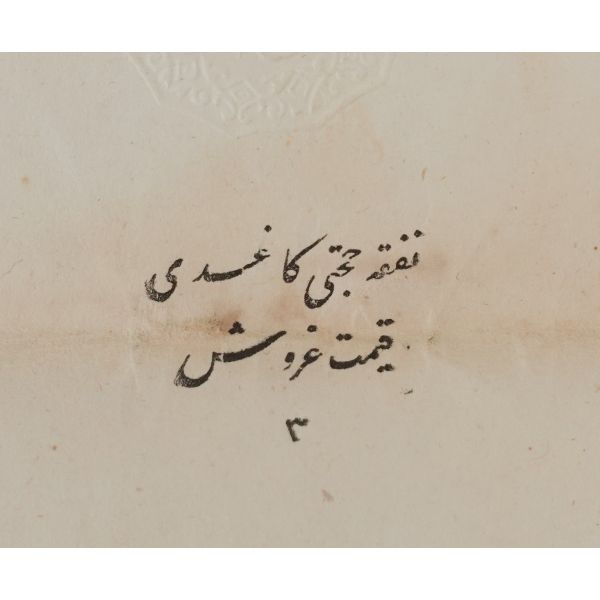 نفقه حجتی کاغدی
قیمت غروش
۳